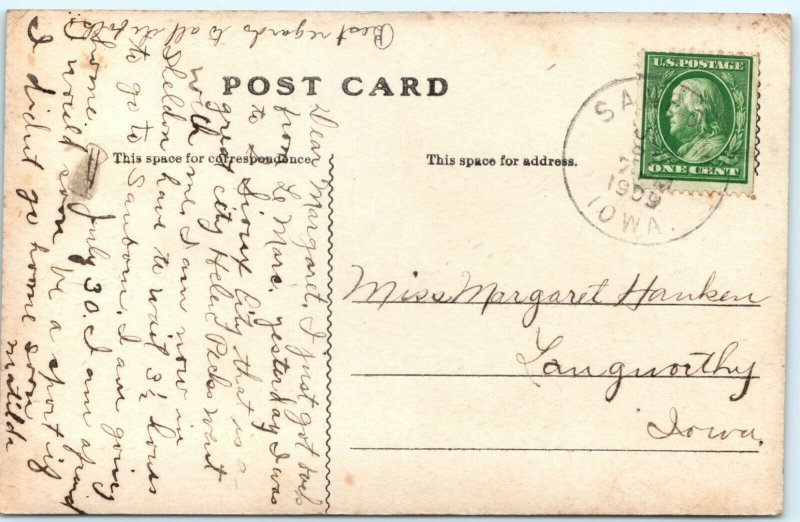 POST CARD
This space for correspondence.
This space for address.
U.S. POSTAGE
ONE CENT
1909
IOWA.
Miss Margaret Hanken
Langworthy
Iowa.
Dear Margaret, I just got back
from Le Mars, yesterday I was
to Sioux City that is a
great city Helen Picks went
with me I am now in
Sheldon have to wait 3½ hours
to go to Sanborn. I am going
home. July 30. I am afraid
I would soon be a sport if
I didnt go home soon
Matilda
Best regards to all the folks